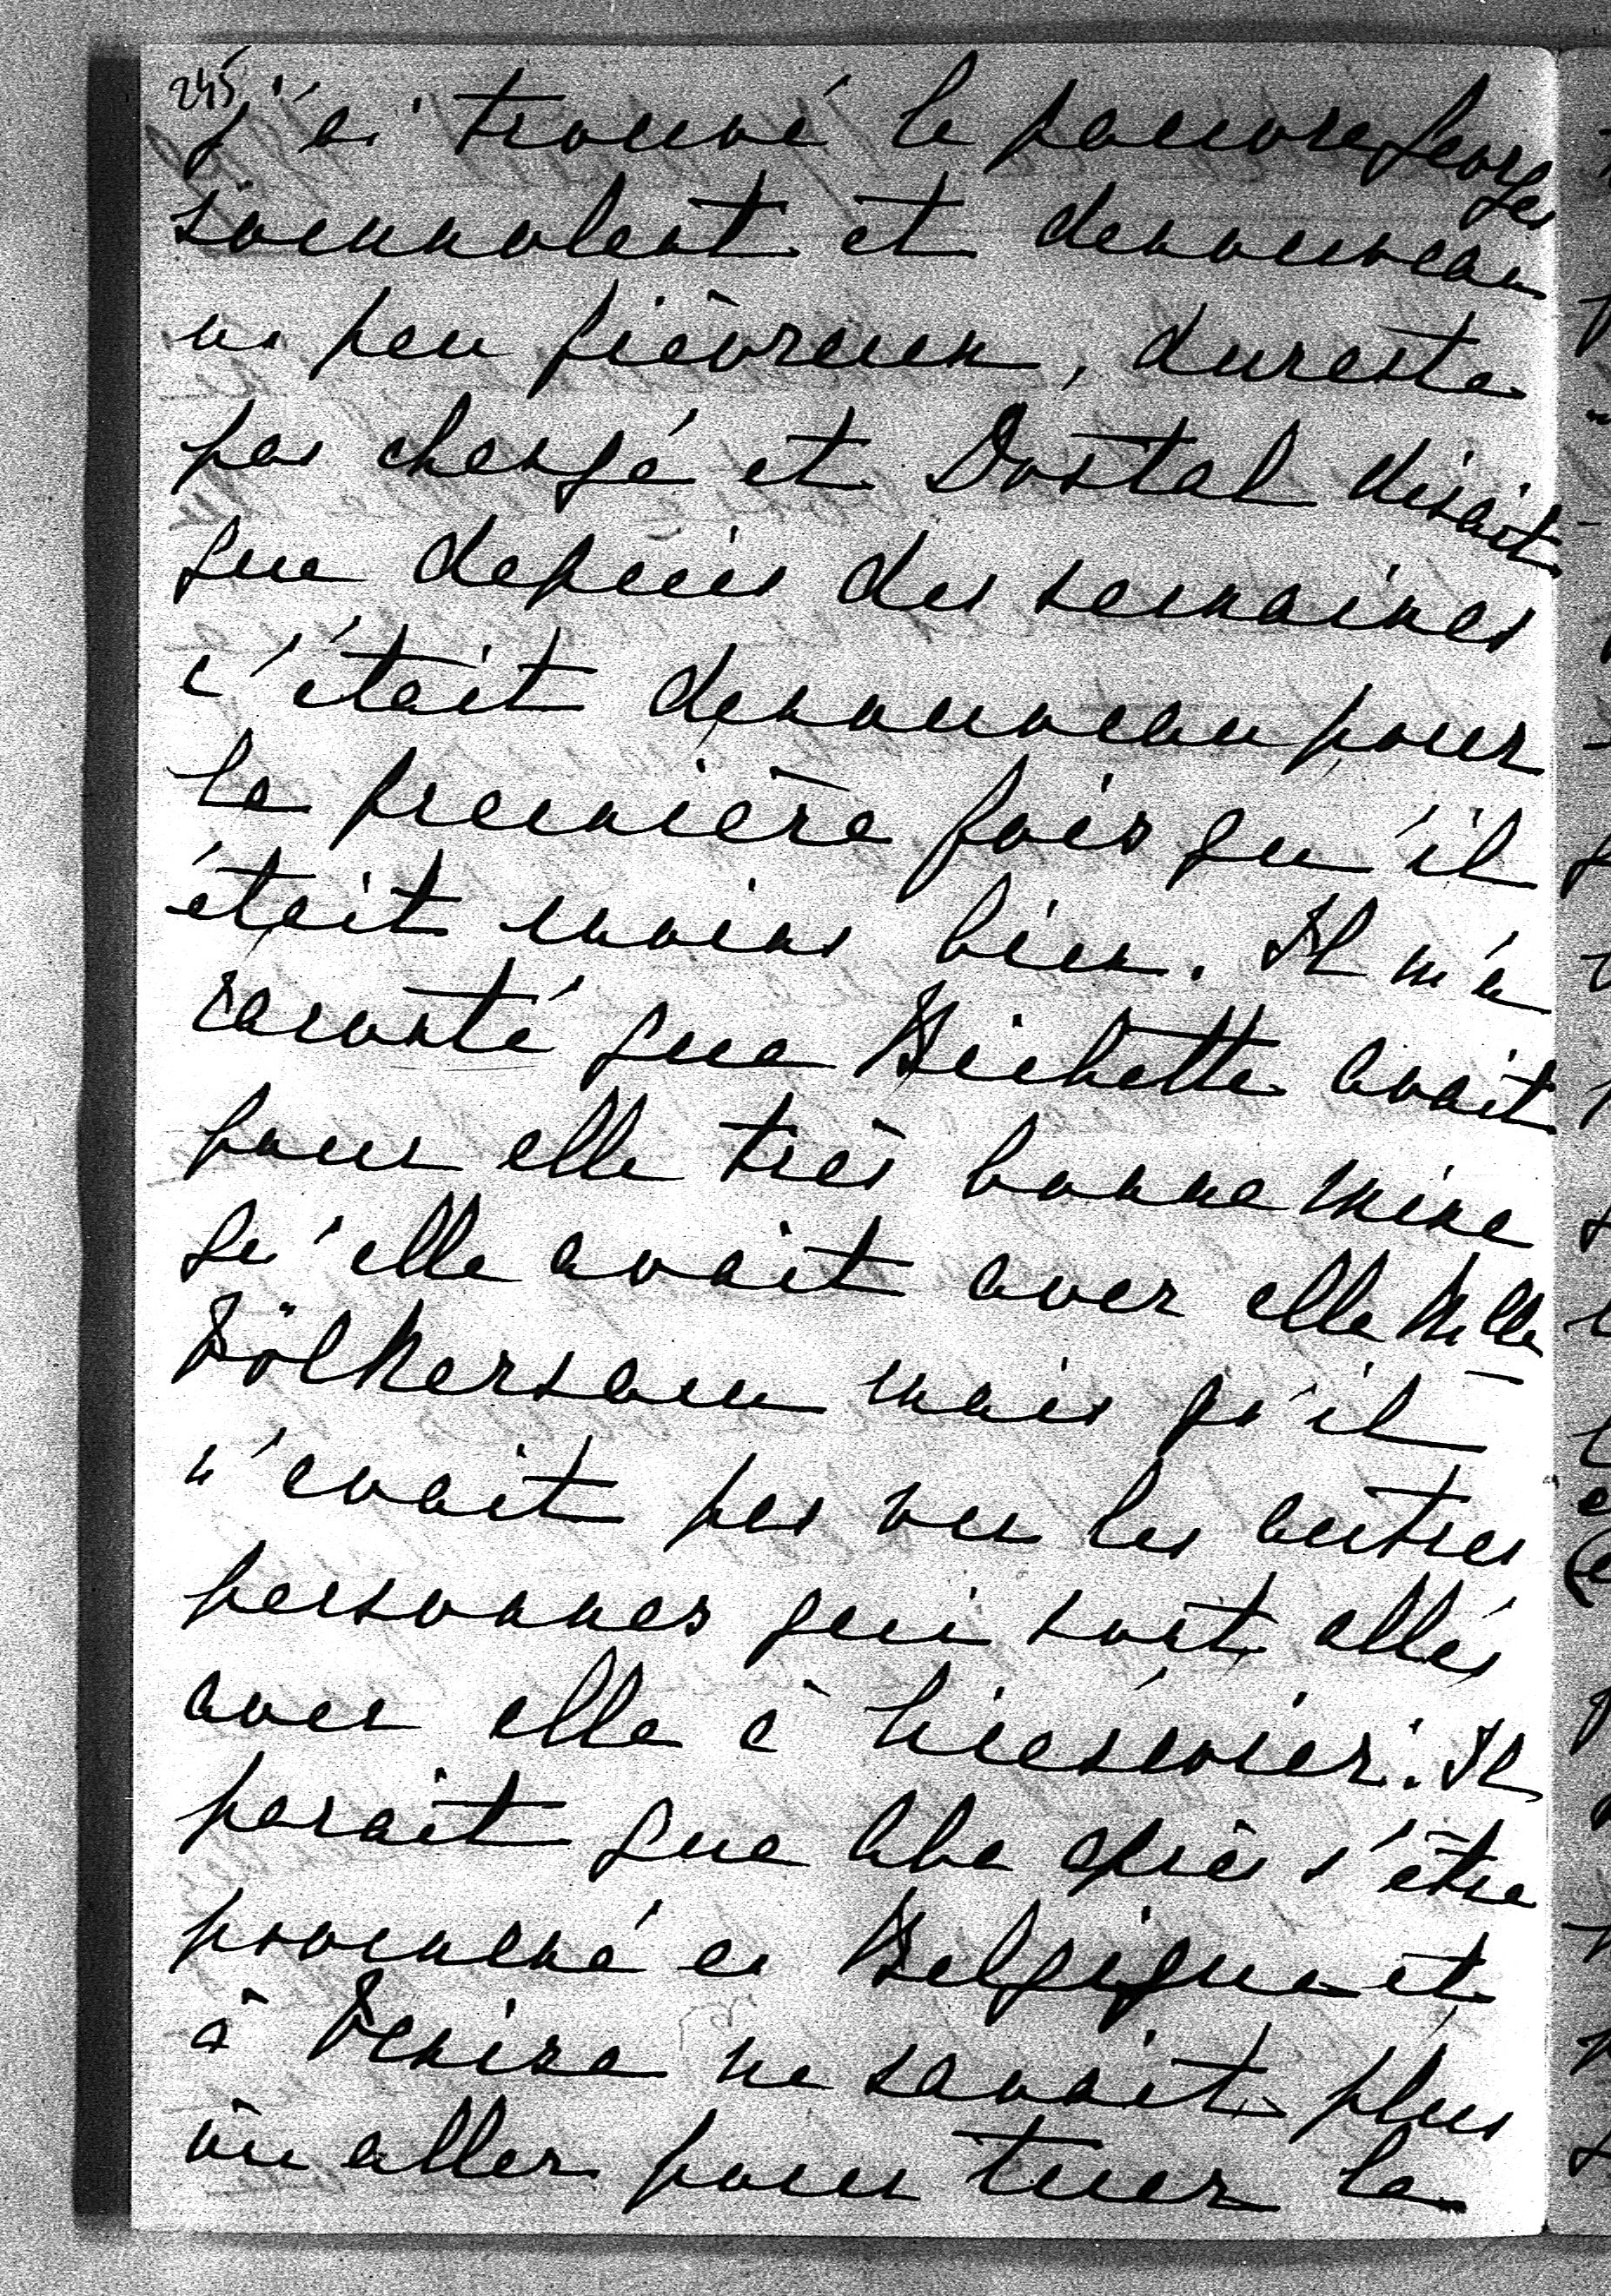 245
j'ai trouvé le pauvre Georges
somnolent et denouveau
un peu fièvreux, dureste
pas changé et Dostal disait
que depuis des semaines
c'était denouveau pour
la première fois qu'il
était moins bien. Il m'a
raconté que Bichette avait
pour elle très bonne mine
qu'elle avait avec elle Mlle
Völkersam mais qu'il
n'avait pas vu les autres
personnes qui sont allés
avec elle à. Il
parait que Aba après s'être
promené en Belgique et
à Venise ne savait plus
où aller pour tuer le